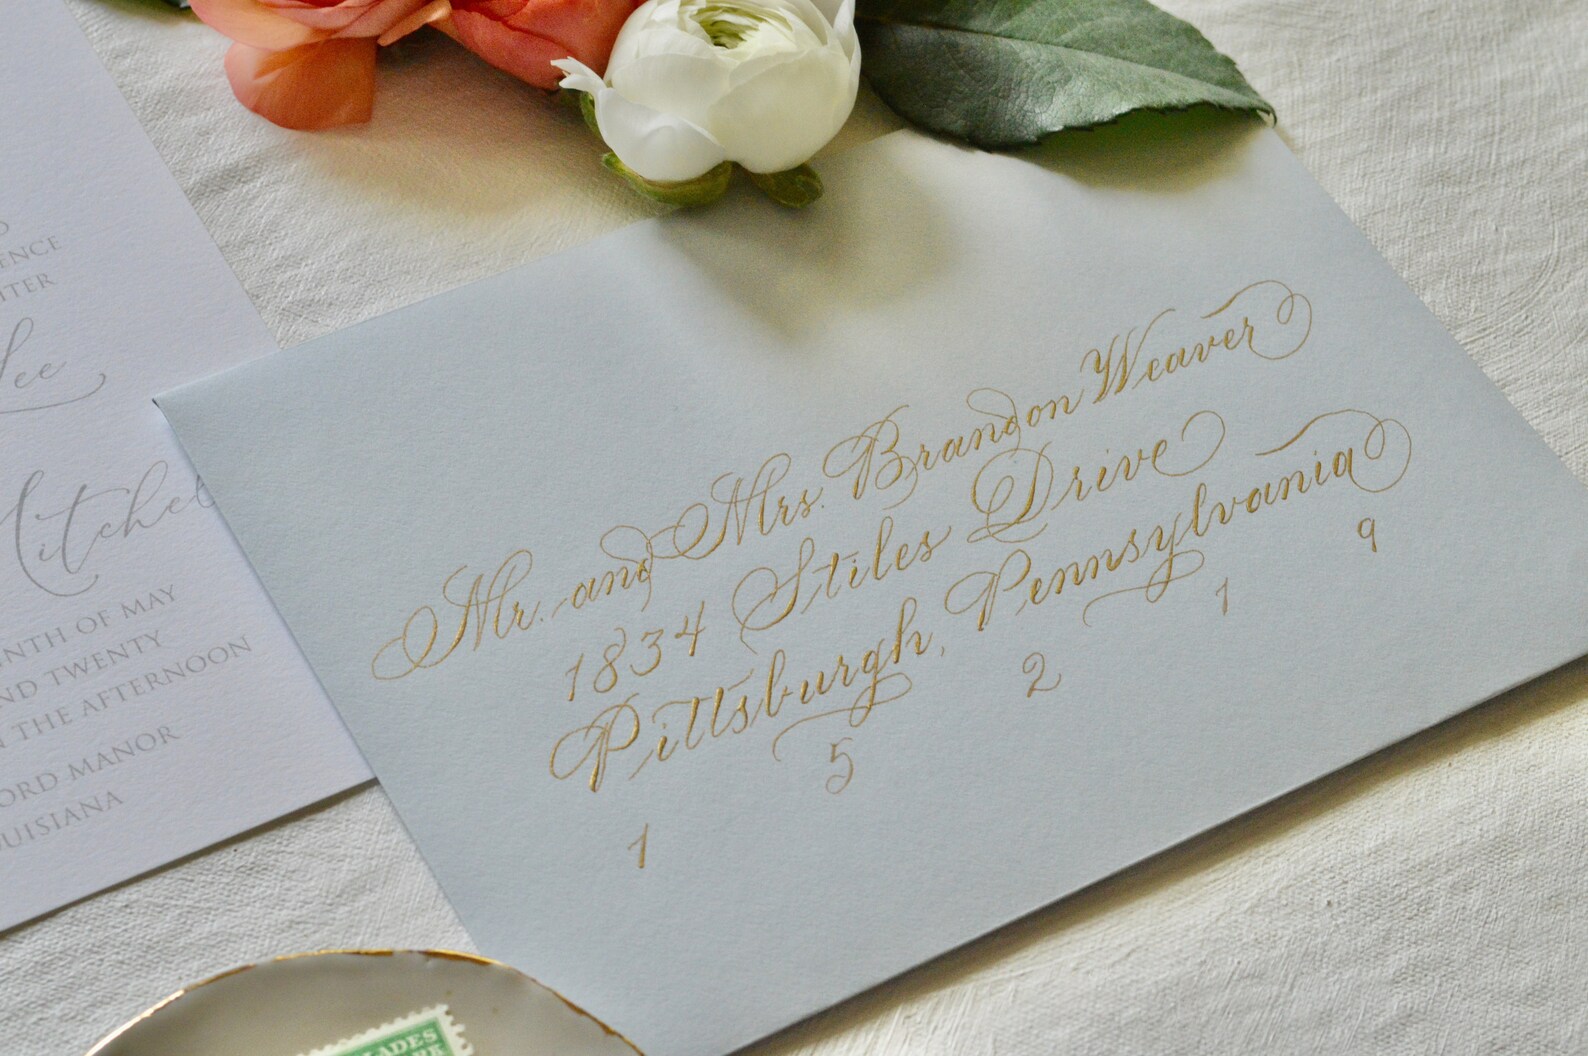 ENCE
lee
Mitchel
INTH OF MAY
ND TWENTY
THE AFTERNOON
ORD MANOR
OUISIANA
Mr. and Mrs. Brandon Weaver
1834 Stiles Drive
Pittsburgh, Pennsylvania
1 5 2 1 9
LADES